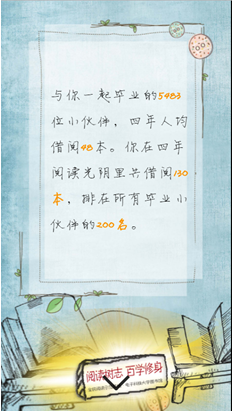 与你一起毕业的5483
位小伙伴，四年人均
借阅48本。你在四年
阅读光阴里共借阅130
本，排在所有毕业小
伙伴的200名。
阅读树志 百学修身